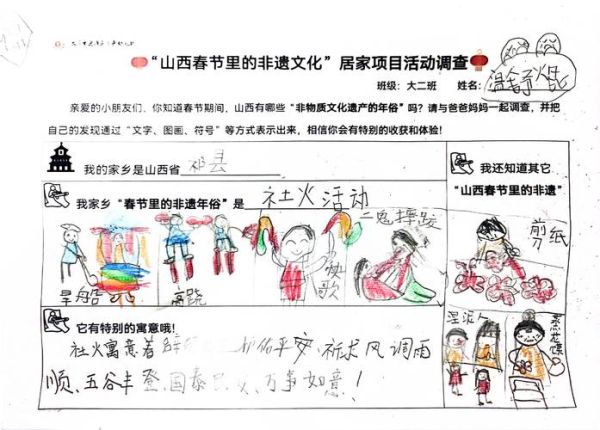 “山西春节里的非遗文化”居家项目活动调查
班级：大二班 姓名：温舍予
亲爱的小朋友们、你知道春节期间，山西有哪些“非物质文化遗产的年俗”吗？请与爸爸妈妈一起调查，并把
自己的发现通过“文字、图画、符号”等方式表示出来，相信你会有特别的收获和体验！
我的家乡是山西省 祁县
我还知道其它
“山西春节里的非遗”
我家乡“春节里的非遗年俗”是 社火活动
旱船
高跷
秧歌
二鬼摔跤
剪纸
泥人
蒸花馍
它有特别的寓意哦！
社火寓意着 平安、祈求风调雨
顺、五谷丰登、国泰民安、万事如意！